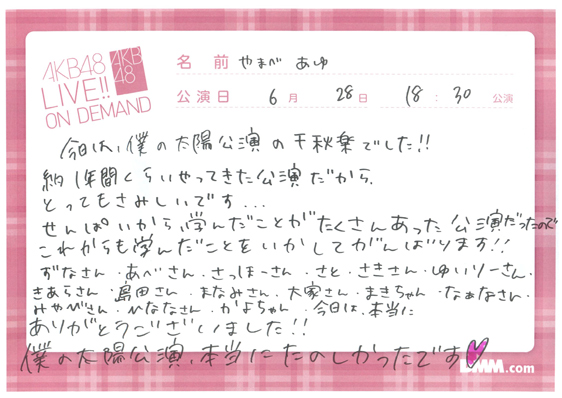 AKB48
LIVE!!
ON DEMAND
AKB
48
名前 やまべ あゆ
公演日 6月 28日 18:30 公演
今日は、僕の太陽公演の千秋楽でした!!
約1年間くらいやってきた公演だから
とってもさみしいです...
せんぱいから学んだことがたくさんあった公演だったので
これからも学んだことをいかしてがんばります!!
ずなさん・あべさん・さっほーさん・さと・さきさん・ゆいりーさん・
きあらさん・島田さん・まなみさん・大家さん・まきちゃん・なぁなさん・
みやべさん・ひななさん・かよちゃん、今日は、本当に
ありがとうございました!!
僕の太陽公演、本当にたのしかったです
DMM.com